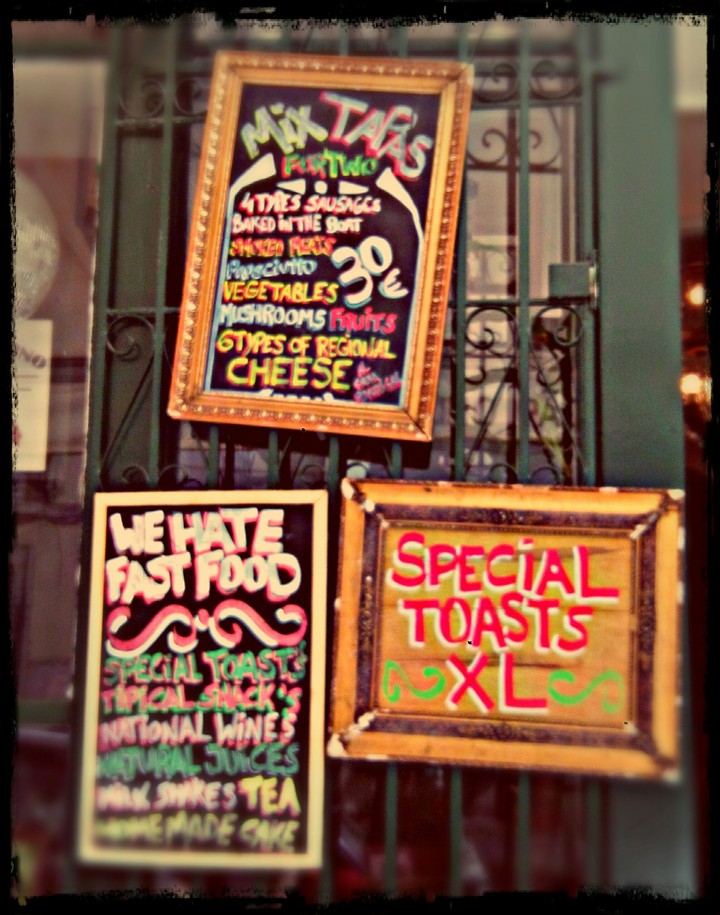 MiX TAPAS
FOR TWO
4 TYPES SAUSAGES
BAKED IN THE BOAT
SMOKED MEATS
PROSCIUTTO
30€
VEGETABLES
MUSHROOMS FRUITS
6 TYPES OF REGIONAL
CHEESE
WE HATE
FAST FOOD
SPECIAL TOAST'S
TIPICAL SNACK'S
NATIONAL WINE'S
NATURAL JUICES
MILK SHAKES TEA
HOME MADE CAKE
SPECiAL
TOASTS
XL